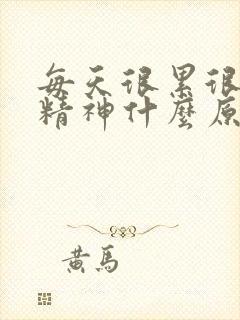 每天很累很
精神什麼原
黃馬